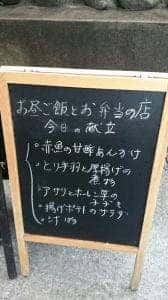 お昼ご飯とお弁当の店
今日の献立
・赤魚の甘酢あんかけ
・とり手羽と厚揚げの
煮物
・アサリとホーレン草の
・揚げポテトのサラダ
・汁物